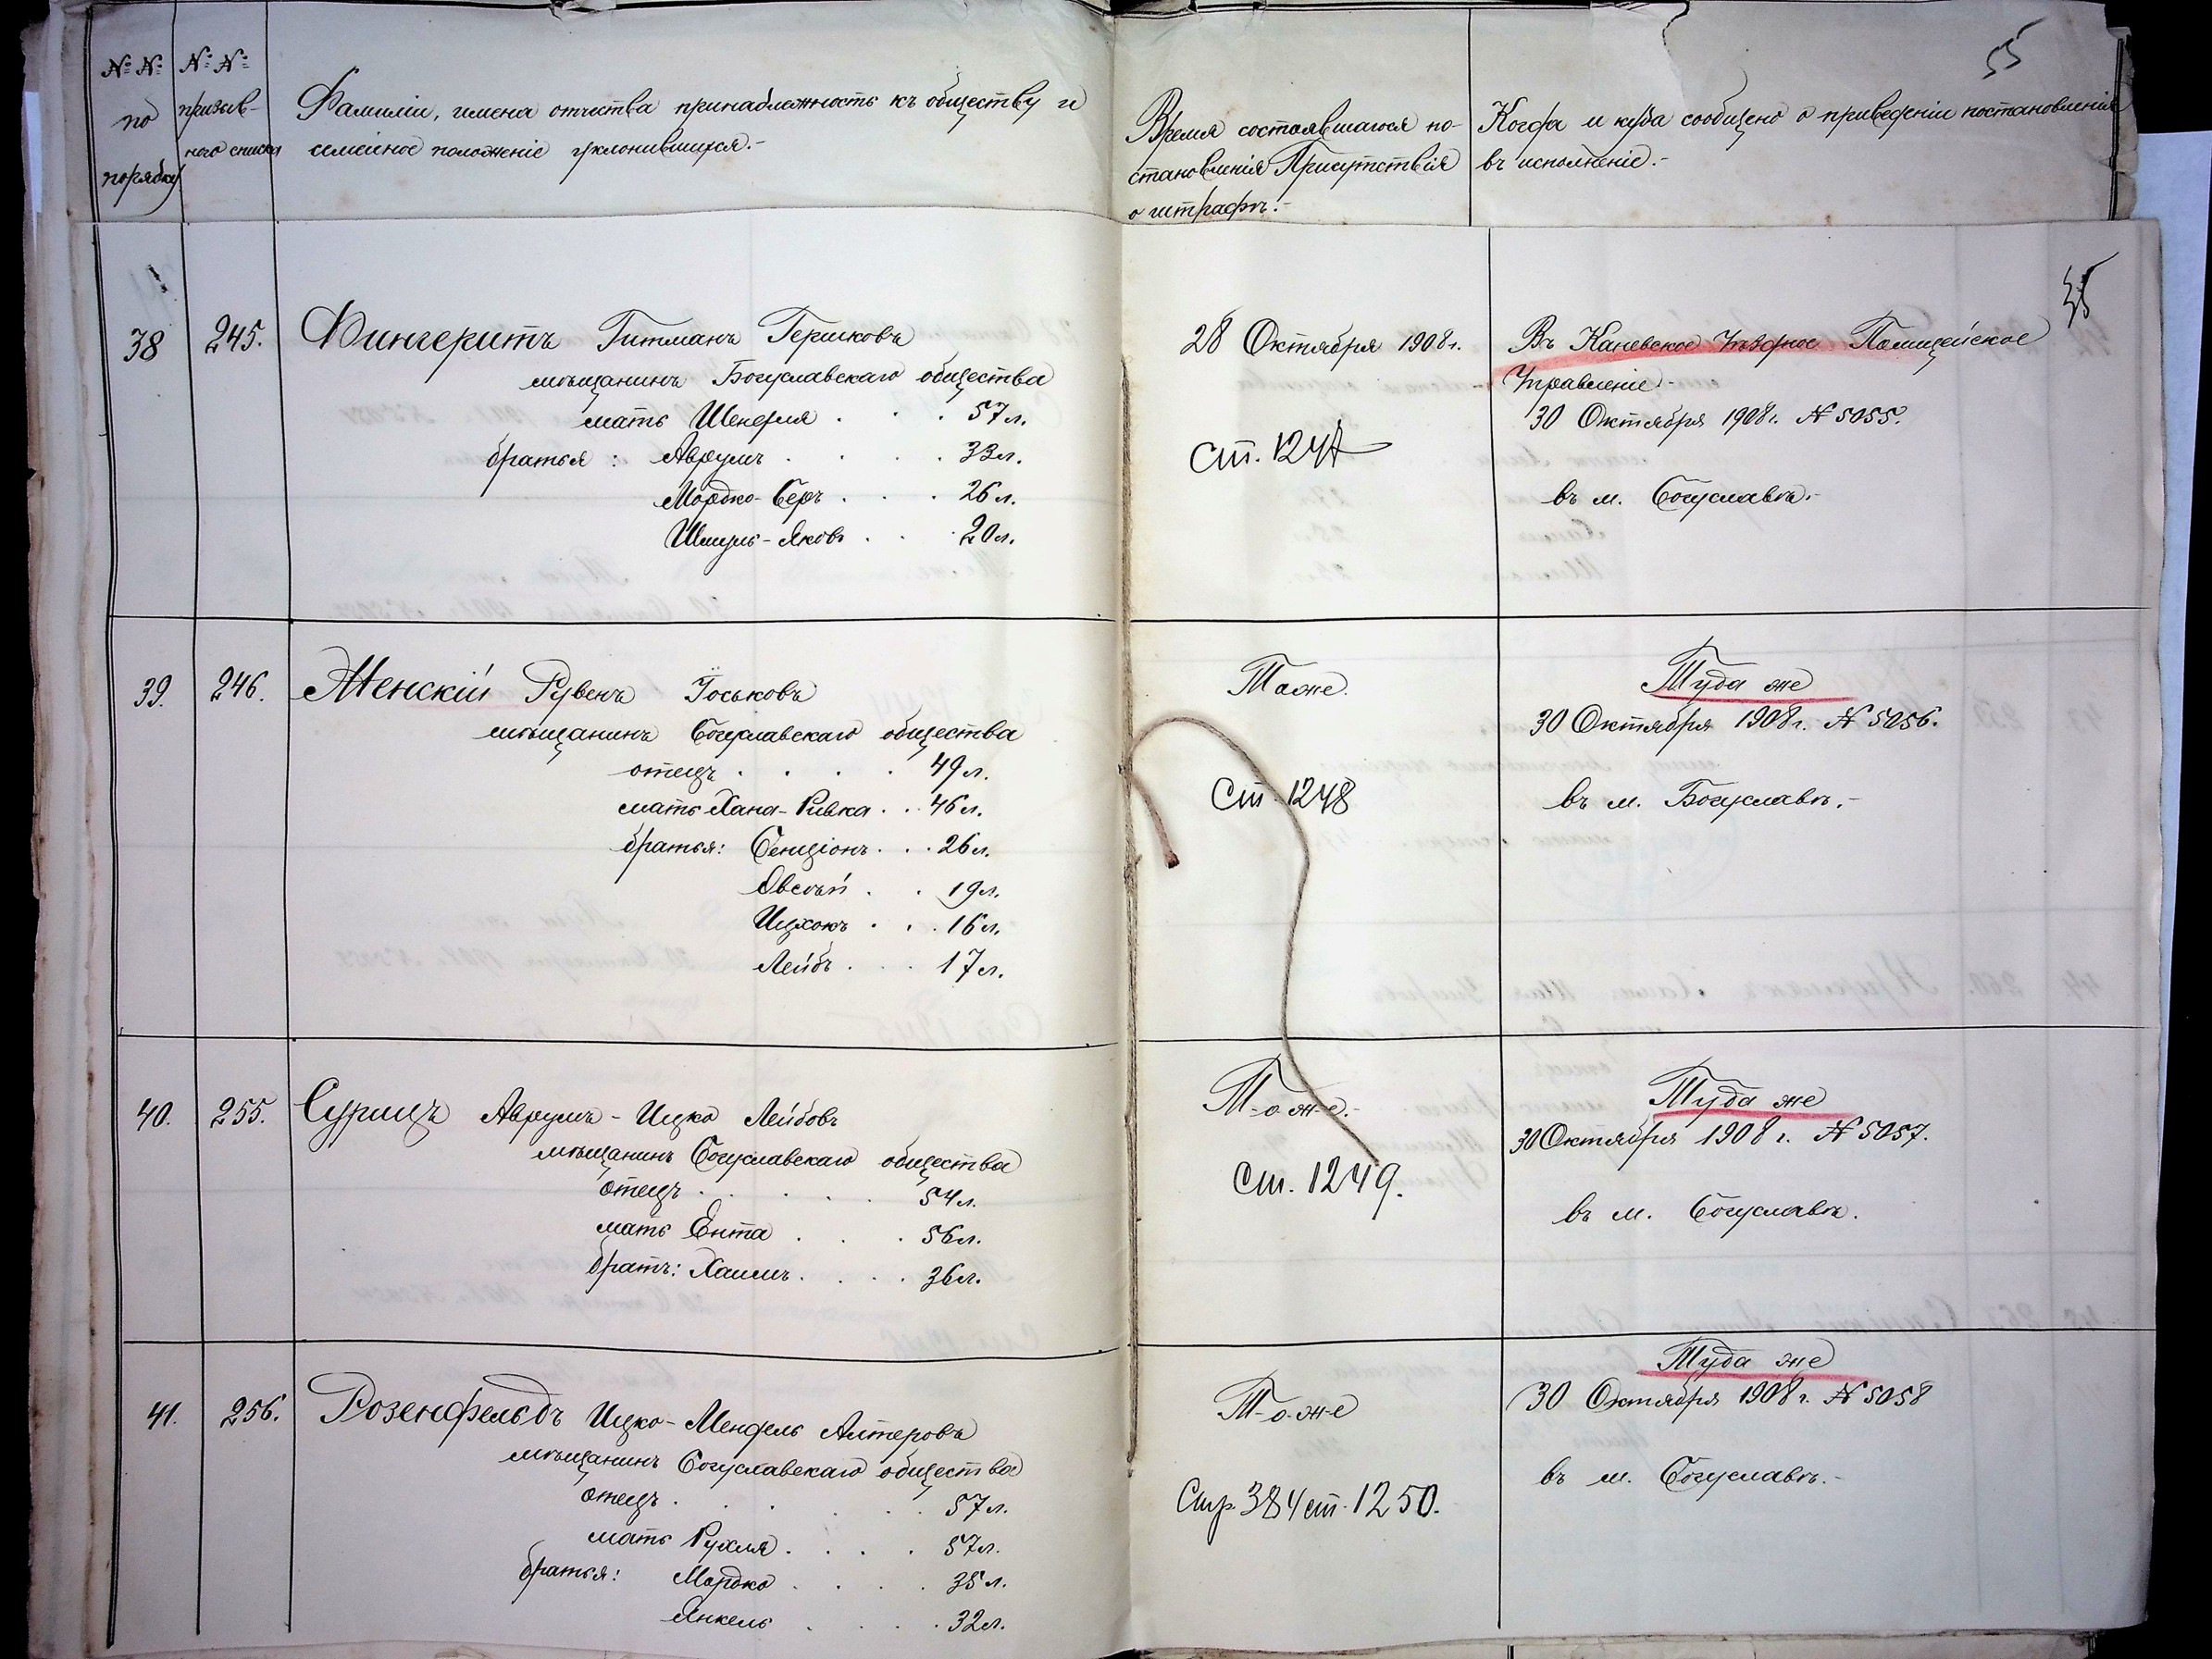 № № по порядку
№ № призыв-
наго списка
Фамиліи, имена отчества принадлежность къ обществу и
семейное положеніе уклонившихся.-
Время состоявшагося по-
становленія Присутствія
о штрафѣ.-
Когда и куда сообщено о приведеніи постановленія
въ исполненіе.-
55
38 245. Фингеритъ Гитманъ Гершковъ
мѣщанинъ Богуславскаго общества
мать Шендля . . . 57 л.
братья: Аврумъ . . . . 33 л.
Мордко-Беръ . . . 26 л.
Шмуль-Яковъ . . . 20 л.
28 Октября 1908 г.
Ст. 1247
Въ Каневское Уѣздное Полицейское
Управленіе.-
30 Октября 1908 г. № 5055.
въ м. Богуславѣ.-
39. 246. Женскій Рувенъ Іоськовъ
мѣщанинъ Богуславскаго общества
отецъ . . . . 49 л.
мать Хана-Ривка . . 46 л.
братья: Бенціонъ . . . 26 л.
Овсѣй . . 19 л.
Ицхокъ . . . 16 л.
Лейбъ . . . 17 л.
Тоже.
Ст. 1248
Туда же
30 Октября 1908 г. № 5056.
въ м. Богуславѣ.-
40. 255. Сурицъ Аврумъ-Ицко Лейбовъ
мѣщанинъ Богуславскаго общества
отецъ . . . . 54 л.
мать Ента . . . 56 л.
братъ: Хаимъ . . . . 36 л.
То-же.-
Ст. 1249.
Туда же
30 Октября 1908 г. № 5057.
въ м. Богуславѣ.
41. 256. Розенфельдъ Ицко-Мендель Алтеровъ
мѣщанинъ Богуславскаго общества
отецъ . . . . 57 л.
мать Рухля . . . . 57 л.
братья: Мордко . . . . 35 л.
Янкель . . . . 32 л.
То-же
Стр. 384 ст. 1250.
Туда же
30 Октября 1908 г. № 5058
въ м. Богуславѣ.-